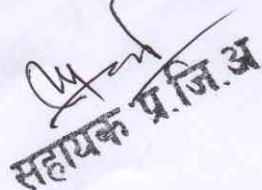 सहायक प्र.जि.अ